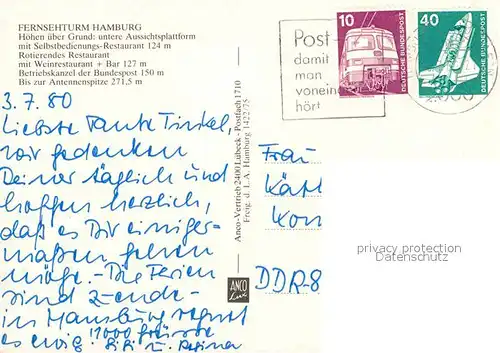 FERNSEHTURM HAMBURG
Höhen über Grund: untere Aussichtsplattform
mit Selbstbedienungs-Restaurant 124 m
Rotierendes Restaurant
mit Weinrestaurant + Bar 127 m
Betriebskanzel der Bundespost 150 m
Bis zur Antennenspitze 271,5 m
3.7.80
Liebste Tante Trinkel,
wir gedenken
Deiner täglich und
hoffen herzlich,
daß es Dir einiger-
maßen gehen
möge. - Die Ferien
sind z-ende -
in Hamburg regnet
es ewig. 1000 Grüße
Bibi u. Regina
Anco-Vertrieb 2400 Lübeck - Postfach 1710
Freig. d. L.A. Hamburg 1422/75
ANCO
Lux
Post
damit
man
vonein
hört
10
DEUTSCHE BUNDESPOST
40
DEUTSCHE BUNDESPOST
Frau
Kät
Kon
DDR-8
privacy protection
Datenschutz